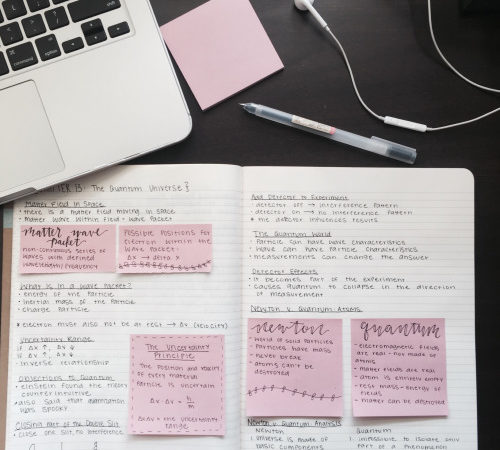 command
option
TER 13: The Quantum Universe
Matter Field in Space
• there is a matter field moving in space
• Matter Wave Within Field = Wave Packet
matter wave
packet
non-continuous series of
waves with defined
wavelength/frequency
Possible positions for
electron within the
wave packet:
Δx → delta x
What is in a wave packet?
• energy of the particle
• inertial mass of the particle
• charge particle
* electron must also not be at rest → Δv (velocity)
Uncertainty Range
if Δx ↑, Δv ↓
if Δv ↑, Δx ↓
• inverse relationship
The Uncertainty
Principle
The position and velocity
of every material
particle is uncertain
Δx Δv = h/m
ΔxΔv = the uncertainty
range
Objections to Quantum
• einstein found the theory
counter intuitive
• also said that quantization
was spooky
Closing Part of the Double Slit
• close one slit, no interference
Add Detector to Experiment
• detector off → interference pattern
• detector on → no interference pattern
* the detector influences results
The Quantum World
• Particle can have wave characteristics
• Wave can have particle characteristics
• measurements can change the answer
Detector Effects
• is becomes part of the experiment
• causes quantum to collapse in the direction
of measurement
Newton v. Quantum Atoms
newton
• world of solid particles
• Particles have mass
• never break
• atoms can't be
destroyed
quantum
• electromagnetic fields
are real - not made of
atoms
• matter fields are real
• atom is entirely empty
• rest mass - energy of
fields
• matter can be destroyed
Newton v. Quantum Analysis
Newton
1. universe is made of
basic components
Quantum
1. impossible to isolate only
part of a phenomenon